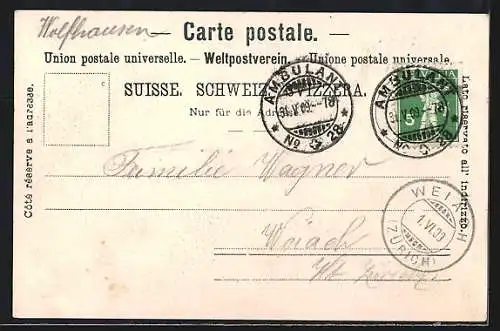 Wolfhausen
Carte postale.
Union postale universelle. — Weltpostverein. — Unione postale universale.
SUISSE. SCHWEIZ. SVIZZERA.
Nur für die Adresse
Côté réservé à l'adresse.
Lato riservato all' indirizzo.
AMBULANT
31.V.09.-18
No 28
AMBULANT
31.V.09.-18
No 28
5
Familie Wagner
Weiach
Kt. Zürich
WEIACH
1.VI.09
(ZÜRICH)